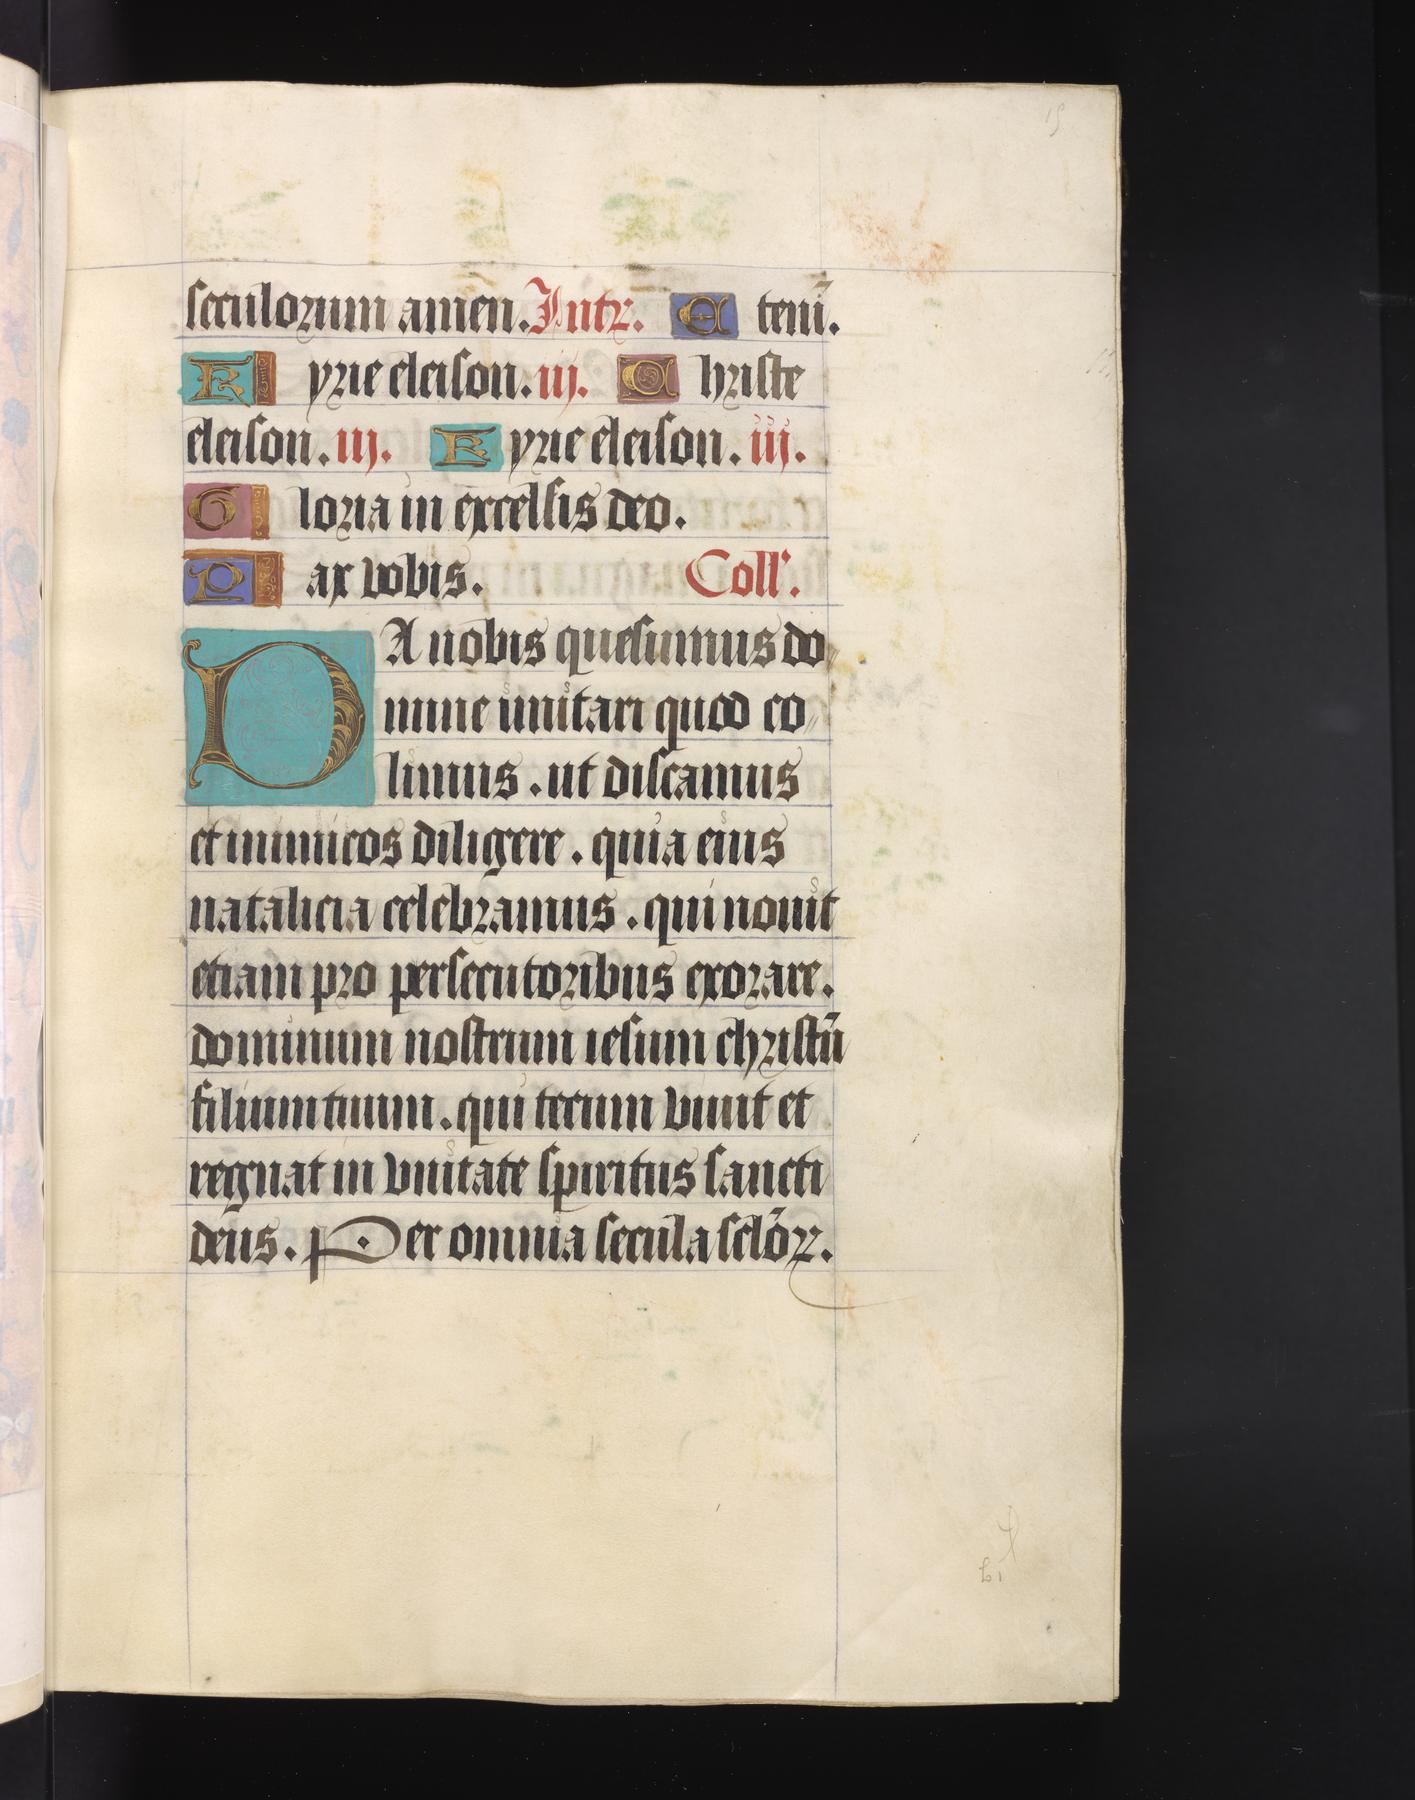 15
seculorum amen. Intr. Eteni͞.
Kyrie eleison. iij. Christe
eleison. iij. Kyrie eleison. iij.
Gloria in excelsis deo.
Pax vobis. Coll'.
DA nobis quesumus do„
mine imitari quod co„
limus. ut discamus
et inimicos diligere. quia eius
natalicia celebramus. qui nouit
etiam pro persecutoribus exorare.
dominum nostrum iesum christū
filium tuum. qui tecum viuit et
regnat in vnitate spiritus sancti
deus. Per omnia secula sclōꝝ.